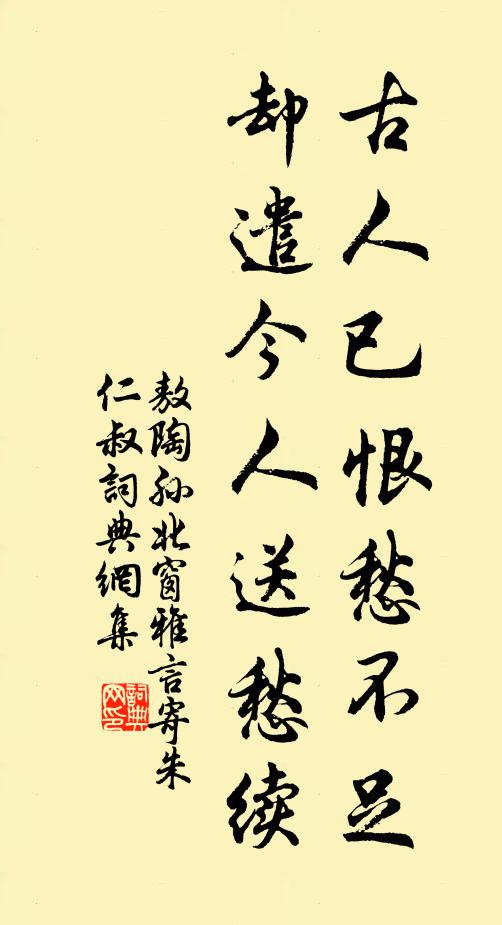 古人已恨愁不足
却遣今人送愁续
敖陶孙北窗雅言寄朱
仁叔詞典網集
詞典网印